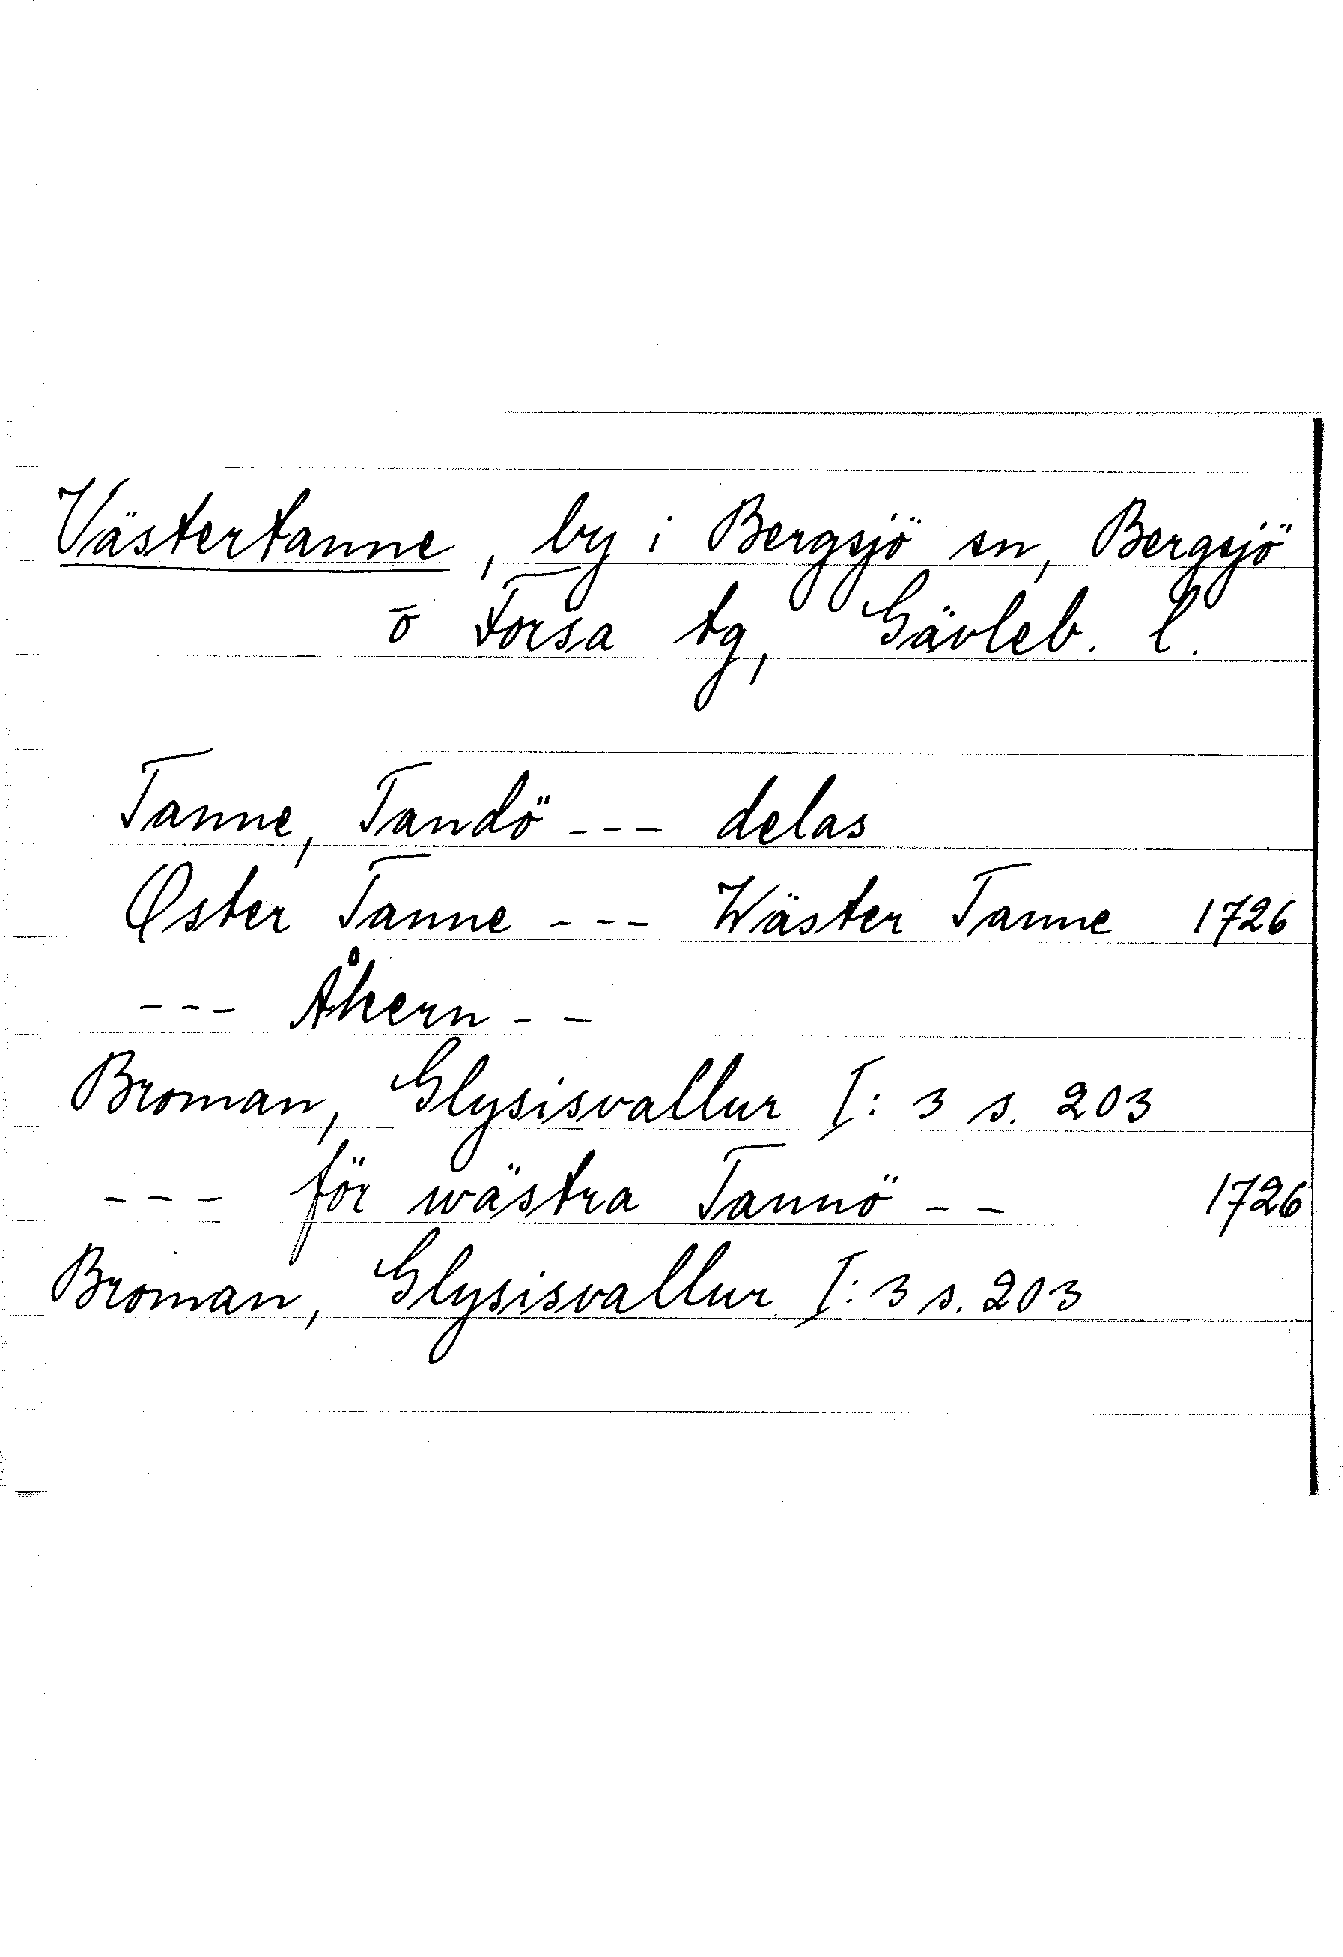 Västertanne, by i Bergsjö sn, Bergsjö
o Forsa tg, Gävleb. l.
Tanne, Tandö --- delas
Øster Tanne --- Wäster Tanne 1726
--- Åkern --
Broman, Glysisvallur I: 3 s. 203
--- för wästra Tannö -- 1726
Broman, Glysisvallur I: 3 s. 203